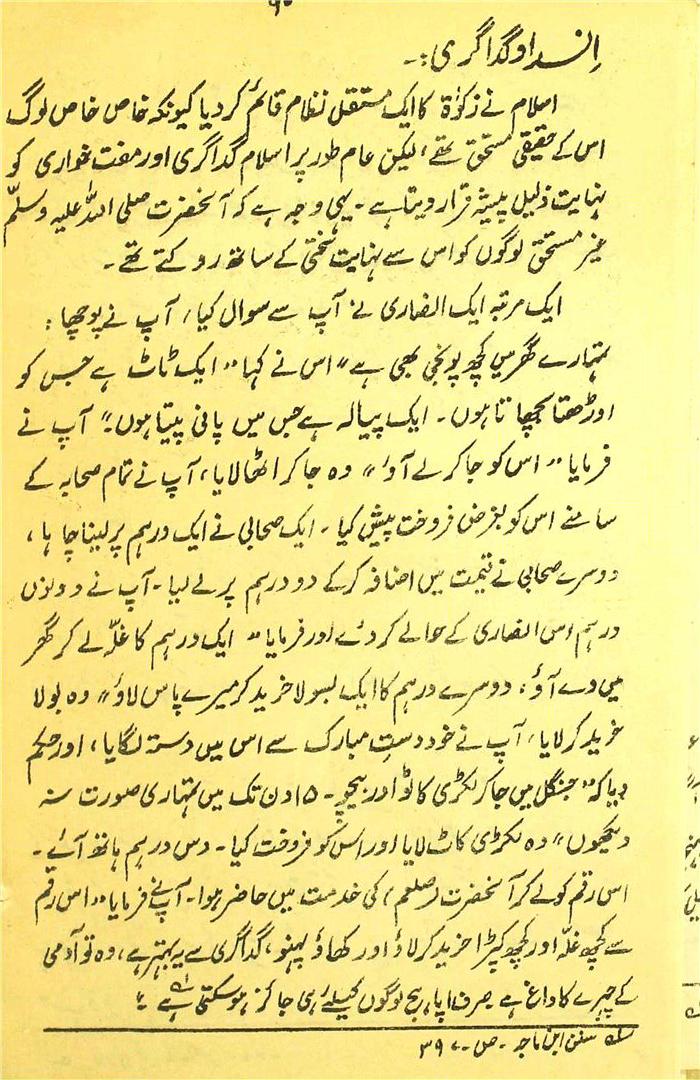 ۹۰
اِنسداد گداگری :۔
اسلام نے زکوٰۃ کا ایک مستقل نظام قائم کر دیا کیونکہ خاص خاص لوگ
اس کے حقیقی مستحق تھے، لیکن عام طور پر اسلام گداگری اور مفت خواری کو
نہایت ذلیل پیشہ قرار دیتا ہے۔ یہی وجہ ہے کہ آنحضرت صلی اللہ علیہ وسلّم
غیر مستحق لوگوں کو اس سے نہایت سختی کے ساتھ روکتے تھے۔
ایک مرتبہ ایک انصاری نے آپ سے سوال کیا، آپ نے پوچھا:
تمہارے گھر میں کچھ پونجی بھی ہے" اس نے کہا" ایک ٹاٹ ہے جس کو
اوڑھتا بچھاتا ہوں۔ ایک پیالہ ہے جس میں پانی پیتا ہوں۔" آپ نے
فرمایا" اس کو جا کر لے آؤ" وہ جا کر اٹھا لایا، آپ نے تمام صحابہ کے
سامنے اس کو بغرض فروخت پیش کیا۔ ایک صحابی نے ایک درہم پر لینا چاہا،
دوسرے صحابی نے قیمت میں اضافہ کرکے دو درہم پر لے لیا۔ آپ نے دونوں
درہم اس انصاری کے حوالے کر دئے اور فرمایا" ایک درہم کا غلّہ لے کر گھر
میں دے آؤ، دوسرے درہم کا ایک بسولا خرید کر میرے پاس لاؤ" وہ بولا
خرید کر لایا، آپ نے خود دستِ مبارک سے اس میں دستہ لگایا، اور حکم
دیا کہ" جنگل میں جا کر لکڑی کاٹو اور بیچو۔ ۱۵ دن تک میں تمہاری صورت نہ
دیکھوں" وہ لکڑی کاٹ لایا اور اس کو فروخت کیا۔ دس درہم ہاتھ آئے۔
اس رقم کو لے کر آنحضرت (صلعم) کی خدمت میں حاضر ہوا۔ آپ نے فرمایا" اس رقم
سے کچھ غلّہ اور کچھ کپڑا خرید کر لاؤ اور کھاؤ پہنو، گداگری سے یہ بہتر ہے، وہ تو آدمی
کے چہرے کا داغ ہے صرف اپاہج لوگوں کیلئے ہی جائز ہو سکتی ہے"
سنن ابن ماجہ۔ ص۔ ۳۹۷